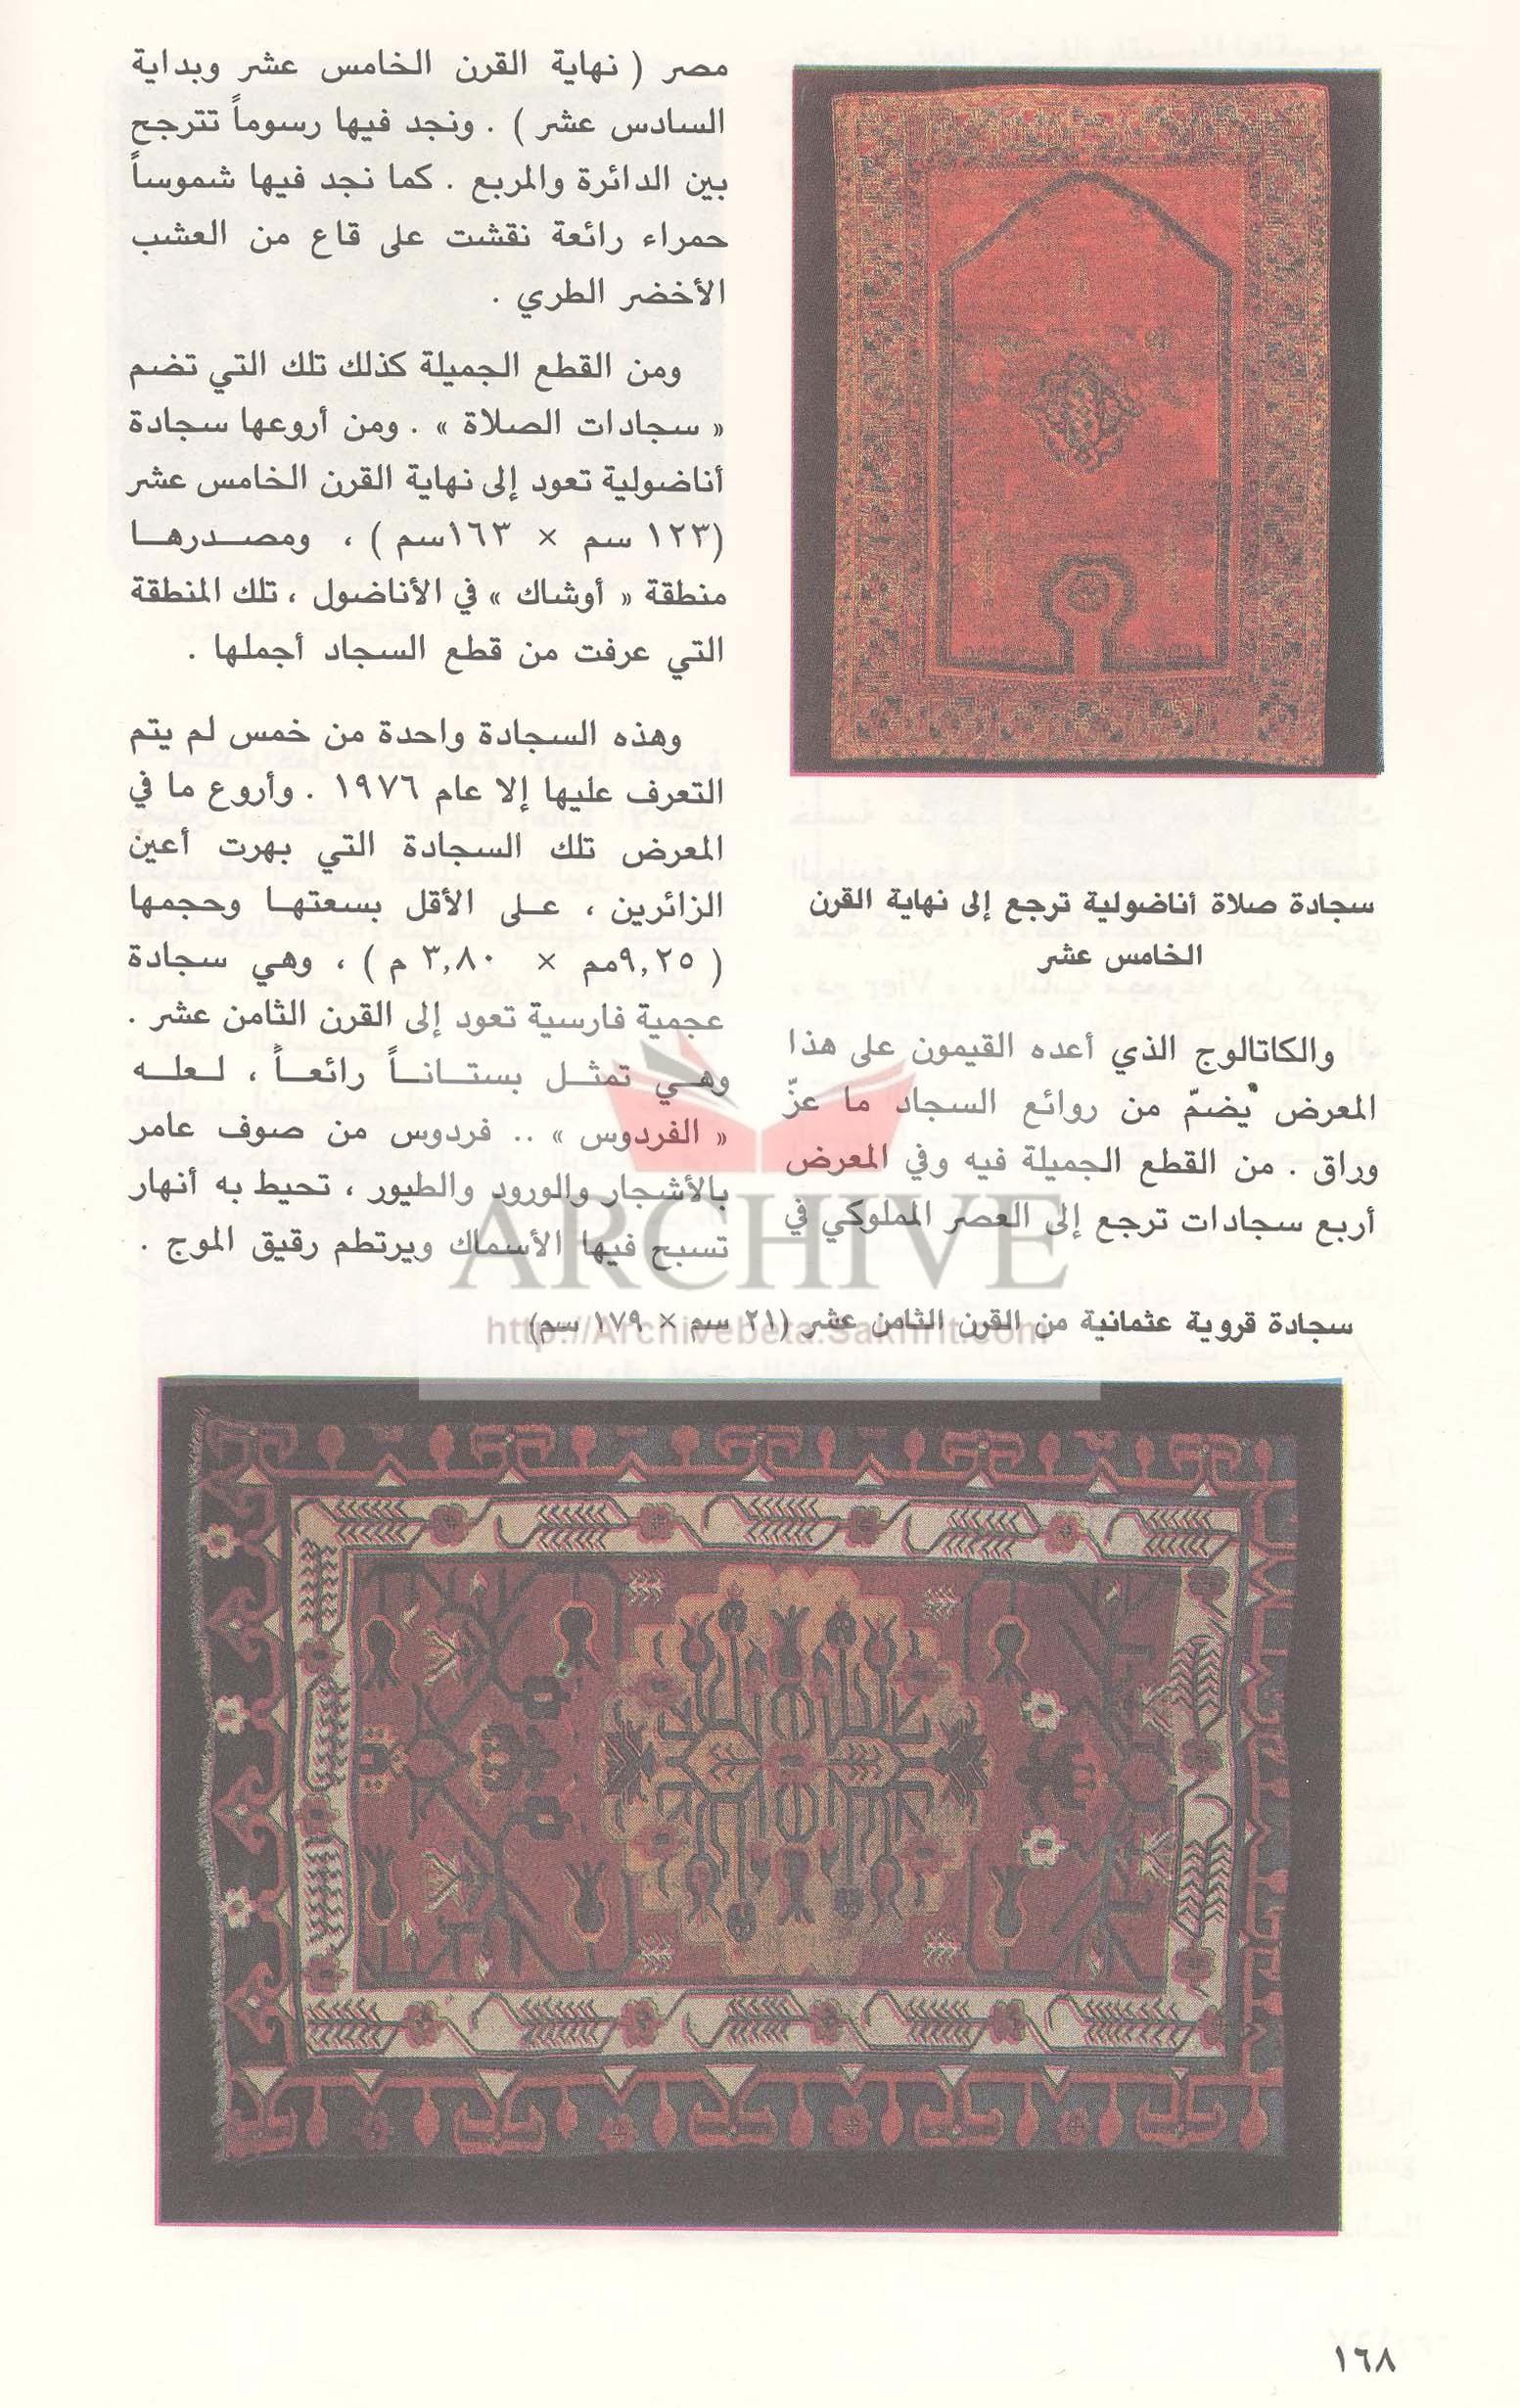 سجادة صلاة أناضولية ترجع إلى نهاية القرن
الخامس عشر
والكاتالوج الذي أعده القيمون على هذا
المعرض يضمّ من روائع السجاد ما عزّ
وراق . من القطع الجميلة فيه وفي المعرض
أربع سجادات ترجع إلى العصر المملوكي في
مصر ( نهاية القرن الخامس عشر وبداية
السادس عشر ) . ونجد فيها رسوماً تترجح
بين الدائرة والمربع . كما نجد فيها شموساً
حمراء رائعة نقشت على قاع من العشب
الأخضر الطري .
ومن القطع الجميلة كذلك تلك التي تضم
« سجادات الصلاة » . ومن أروعها سجادة
أناضولية تعود إلى نهاية القرن الخامس عشر
(١٢٣ سم × ١٦٣سم ) ، ومصدرها
منطقة « أوشاك » في الأناضول ، تلك المنطقة
التي عرفت من قطع السجاد أجملها .
وهذه السجادة واحدة من خمس لم يتم
التعرف عليها إلا عام ١٩٧٦ . وأروع ما في
المعرض تلك السجادة التي بهرت أعين
الزائرين ، على الأقل بسعتها وحجمها
( ٩,٢٥مم × ٣,٨٠ م ) ، وهي سجادة
عجمية فارسية تعود إلى القرن الثامن عشر .
وهي تمثل بستاناً رائعاً ، لعله
« الفردوس » .. فردوس من صوف عامر
بالأشجار والورود والطيور ، تحيط به أنهار
تسبح فيها الأسماك ويرتطم رقيق الموج .
ARCHIVE
http://Archivebeta.Sakhrit.com
سجادة قروية عثمانية من القرن الثامن عشر (٢١ سم × ١٧٩ سم)
١٦٨